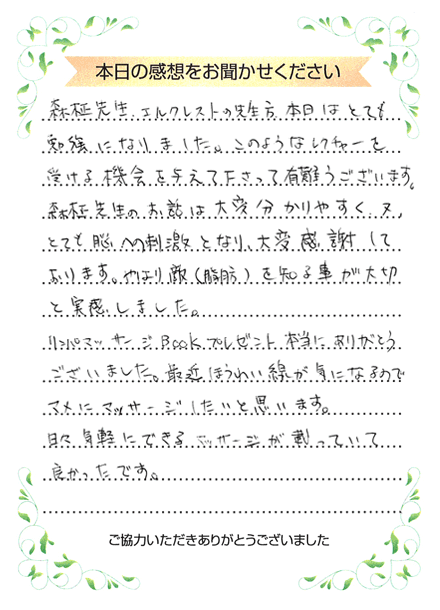 本日の感想をお聞かせください
森柾先生、エルクレストの先生方、本日はとても
勉強になりました。このようなレクチャーを
受ける機会を与えて下さって有難うございます。
森柾先生のお話は大変分かりやすく、又、
とても脳への刺激となり、大変感謝して
おります。やはり敵(脂肪)を知る事が大切
と実感しました。
リンパマッサージBookプレゼント本当にありがとう
ございました。最近ほうれい線が気になるので
マメにマッサージしたいと思います。
日々気軽にできるマッサージが載っていて
良かったです。
ご協力いただきありがとうございました